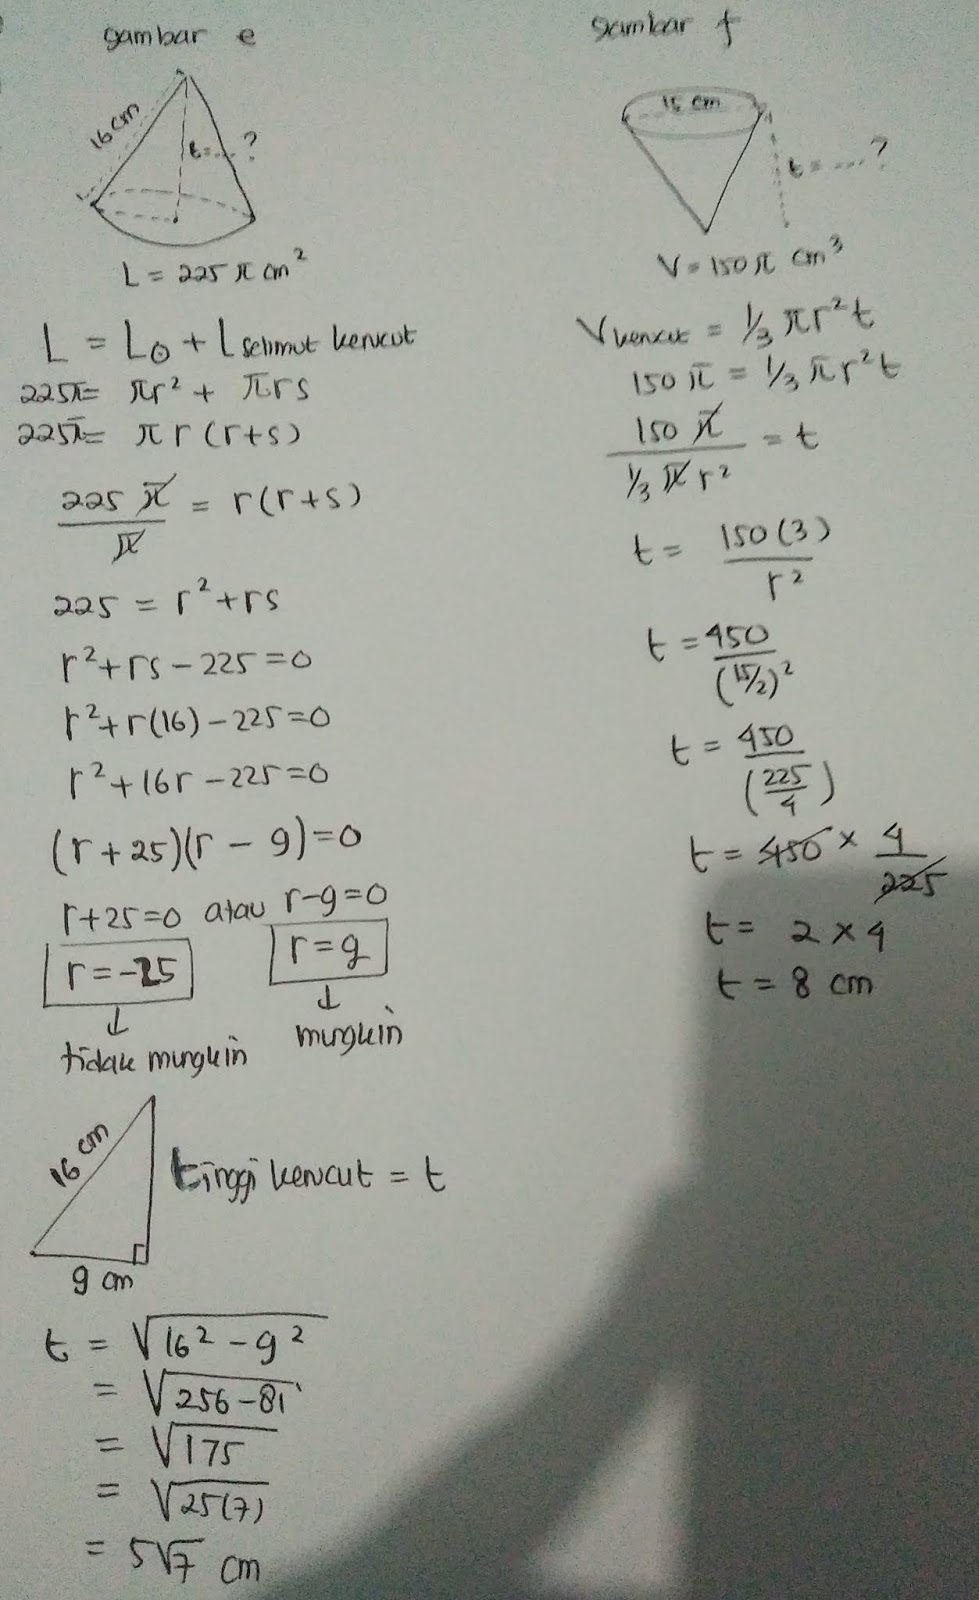 gambar e
16 cm
t = .... ?
L = 225 π cm²
L = L○ + L selimut kerucut
225π = πr² + πrs
225π = πr(r+s)
225 π / π = r(r+s)
225 = r² + rs
r² + rs − 225 = 0
r² + r(16) − 225 = 0
r² + 16r − 225 = 0
(r + 25)(r − 9) = 0
r + 25 = 0 atau r − 9 = 0
r = −25 r = 9
↓ ↓
tidak mungkin mungkin
16 cm
tinggi kerucut = t
9 cm
t = √(16² − 9²)
= √(256 − 81)
= √175
= √25(7)
= 5√7 cm
gambar f
15 cm
t = .... ?
V = 150π cm³
V kerucut = 1/3 πr²t
150 π = 1/3 πr²t
150 π / 1/3 π r² = t
t = 150(3) / r²
t = 450 / (15/2)²
t = 450 / (225/4)
t = 450 × 4/225
t = 2 × 4
t = 8 cm